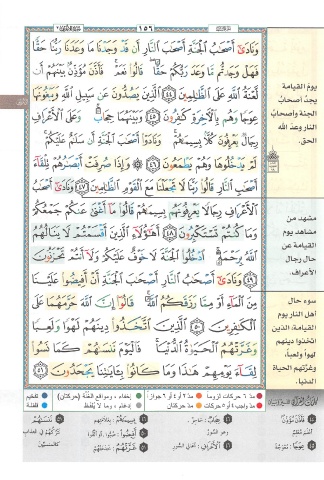 ١٥٦
وَنَادَىٰٓ أَصْحَٰبُ ٱلْجَنَّةِ أَصْحَٰبَ ٱلنَّارِ أَن قَدْ وَجَدْنَا مَا وَعَدَنَا رَبُّنَا حَقًّا
فَهَلْ وَجَدتُّم مَّا وَعَدَ رَبُّكُمْ حَقًّا ۖ قَالُوا۟ نَعَمْ ۚ فَأَذَّنَ مُؤَذِّنٌۢ بَيْنَهُمْ أَن
لَّعْنَةُ ٱللَّهِ عَلَى ٱلظَّٰلِمِينَ ٤٤ ٱلَّذِينَ يَصُدُّونَ عَن سَبِيلِ ٱللَّهِ وَيَبْغُونَهَا
عِوَجًا وَهُم بِٱلْـَٔاخِرَةِ كَٰفِرُونَ ٤٥ وَبَيْنَهُمَا حِجَابٌ ۚ وَعَلَى ٱلْأَعْرَافِ
رِجَالٌ يَعْرِفُونَ كُلًّۢا بِسِيمَىٰهُمْ ۚ وَنَادَوْا۟ أَصْحَٰبَ ٱلْجَنَّةِ أَن سَلَٰمٌ عَلَيْكُمْ ۚ
لَمْ يَدْخُلُوهَا وَهُمْ يَطْمَعُونَ ٤٦ وَإِذَا صُرِفَتْ أَبْصَٰرُهُمْ تِلْقَآءَ
أَصْحَٰبِ ٱلنَّارِ قَالُوا۟ رَبَّنَا لَا تَجْعَلْنَا مَعَ ٱلْقَوْمِ ٱلظَّٰلِمِينَ ٤٧ وَنَادَىٰٓ أَصْحَٰبُ
ٱلْأَعْرَافِ رِجَالًا يَعْرِفُونَهُم بِسِيمَىٰهُمْ قَالُوا۟ مَآ أَغْنَىٰ عَنكُمْ جَمْعُكُمْ
وَمَا كُنتُمْ تَسْتَكْبِرُونَ ٤٨ أَهَٰٓؤُلَآءِ ٱلَّذِينَ أَقْسَمْتُمْ لَا يَنَالُهُمُ
ٱللَّهُ بِرَحْمَةٍ ۚ ٱدْخُلُوا۟ ٱلْجَنَّةَ لَا خَوْفٌ عَلَيْكُمْ وَلَآ أَنتُمْ تَحْزَنُونَ
٤٩ وَنَادَىٰٓ أَصْحَٰبُ ٱلنَّارِ أَصْحَٰبَ ٱلْجَنَّةِ أَنْ أَفِيضُوا۟ عَلَيْنَا
مِنَ ٱلْمَآءِ أَوْ مِمَّا رَزَقَكُمُ ٱللَّهُ ۚ قَالُوٓا۟ إِنَّ ٱللَّهَ حَرَّمَهُمَا عَلَى
ٱلْكَٰفِرِينَ ٥٠ ٱلَّذِينَ ٱتَّخَذُوا۟ دِينَهُمْ لَهْوًا وَلَعِبًا
وَغَرَّتْهُمُ ٱلْحَيَوٰةُ ٱلدُّنْيَا ۚ فَٱلْيَوْمَ نَنسَىٰهُمْ كَمَا نَسُوا۟
لِقَآءَ يَوْمِهِمْ هَٰذَا وَمَا كَانُوا۟ بِـَٔايَٰتِنَا يَجْحَدُونَ ٥١
يوم القيامة
يجد أصحاب
الجنة وأصحاب
النار وعد الله
الحق.
مشهد من
مشاهد يوم
القيامة عن
حال رجال
الأعراف.
سوء حال
أهل النار يوم
القيامة، الذين
اتخذوا دينهم
لهواً ولعباً،
وغرتهم الحياة
الدنيا.
مد ٦ حركات لزوماً
مد ٢ أو ٤ أو ٦ جوازاً
إخفاء، ومواقع الغنة (حركتان)
تفخيم
مد واجب ٤ أو ٥ حركات
مد حركتان
إدغام، وما لا يلفظ
قلقلة